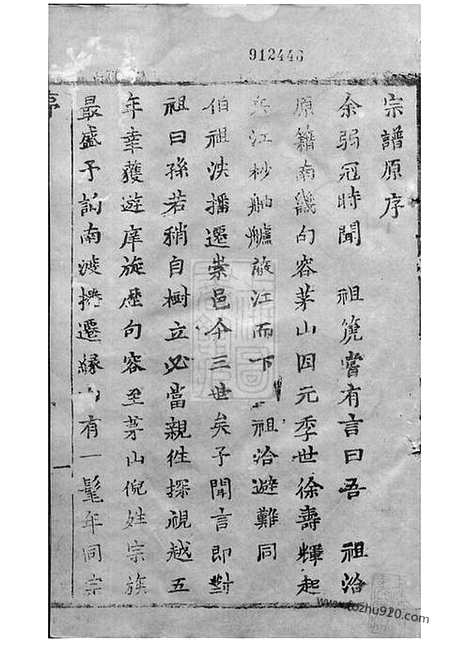 912446
宗譜原序
余弱冠時聞 祖筦嘗有言曰吾 祖洽
原籍南畿句容茅山因元季世徐壽輝起
兵江秒舳艫蔽江而下 祖洽避難同
伯祖泱播遷崇邑今三世矣予聞言即對
祖曰孫若稍自樹立必當親徃探視越五
年幸獲遊庠旋歷句容至茅山倪姓宗族
最盛予訪南渡搬遷緣 有一髦年同宗
序
一
www.tozhu920.com